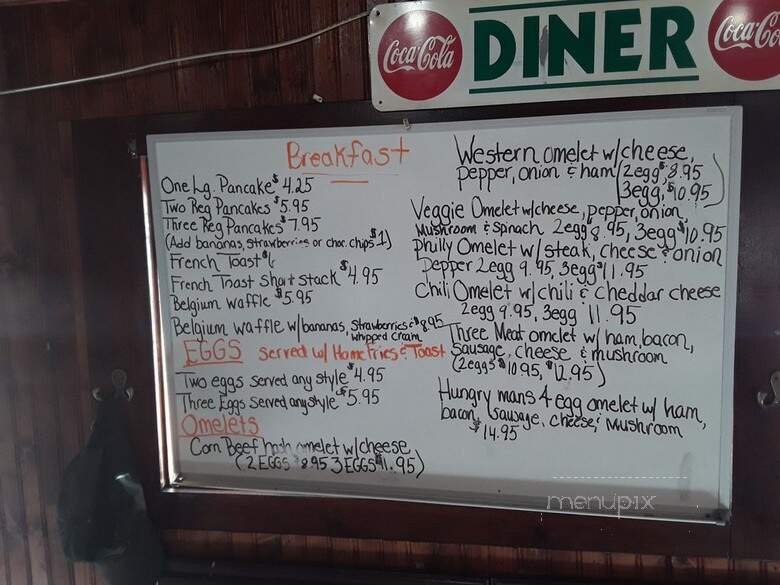 Coca-Cola DINER Coca-Cola
Breakfast
One Lg. Pancake $4.25
Two Reg Pancakes $5.95
Three Reg Pancakes $7.95
(Add bananas, strawberries or choc. chips $1)
French Toast
French Toast Short Stack $4.95
Belgium waffle $5.95
Belgium waffle w/bananas, strawberries & $8.95
whipped cream
EGGS served w/ Home Fries & Toast
Two eggs served any style $4.95
Three Eggs served any style $5.95
Omelets
Corn Beef hash omelet w/cheese
(2 EGGS $8.95 3 EGGS $11.95)
Western omelet w/cheese,
pepper, onion & ham (2egg $8.95
3egg, $10.95)
Veggie Omelet w/cheese, pepper, onion,
Mushroom & Spinach 2egg 8.95, 3egg $10.95
Philly Omelet w/ steak, cheese & onion
Pepper 2egg 9.95, 3egg $11.95
Chili Omelet w/chili & cheddar cheese
2egg 9.95, 3egg 11.95
Three Meat omelet w/ ham, bacon,
sausage, cheese & mushroom
(2eggs $10.95, $12.95)
Hungry mans 4 egg omelet w/ ham,
bacon, sausage, cheese, & mushroom
$14.95
menupix